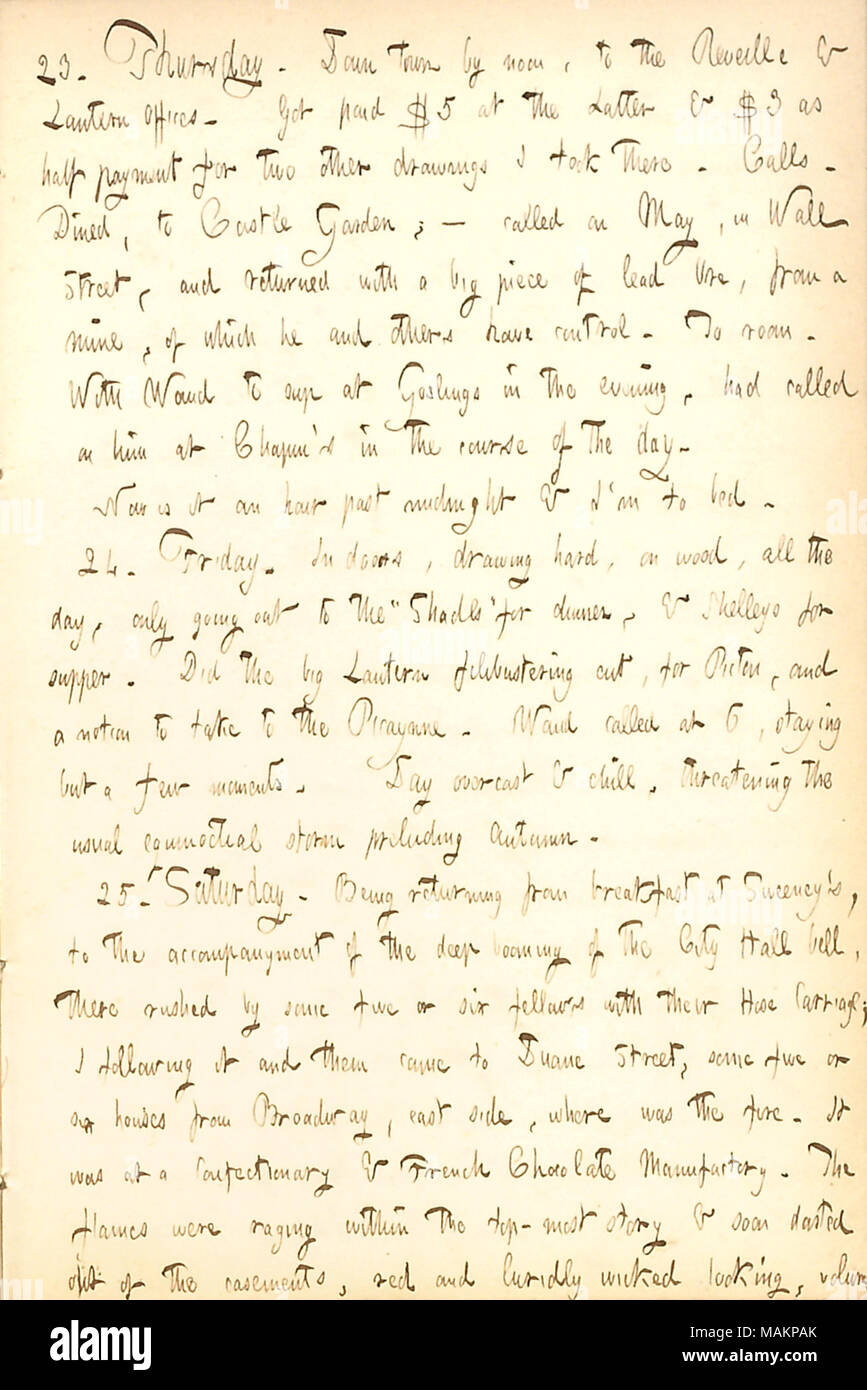 23. Thursday. Down town by noon, to the Reveille &
Lantern offices. Got paid $5 at the Latter & $3 as
half payment for two other drawings I took there. Calls.
Dined, to Castle Garden; — called on May, in Wall
Street, and returned with a big piece of lead Ore, from a
mine, of which he and others have control. To room.
With Waud to sup at Goslings in the evening, had called
on him at Chapin's in the course of the day.
Now is it an hour past midnight & I'm to bed.
24. Friday. In doors, drawing hard, on wood, all the
day, only going out to the "Shades" for dinner, & Shelleys for
supper. Did the big Lantern filibustering cut, for Picton, and
a notion to take to the Picayune. Waud called at 6, staying
but a few moments. Day overcast & chill, threatening the
usual equinoctial storm preluding Autumn.
25. Saturday. Being returning from breakfast at Sweeney's,
to the accompanyment of the deep booming of the City Hall bell,
there rushed by some five or six fellows with their Hose Carriage;
I following it and them came to Duane Street, some five or
six houses from Broadway, east side, where was the fire. It
was at a Confectionary & French Chocolate Manufactory. The
flames were raging within the top-most story & soon darted
out of the casements, red and luridly wicked looking, volum
alamy
Image ID: MAKPAK
www.alamy.com